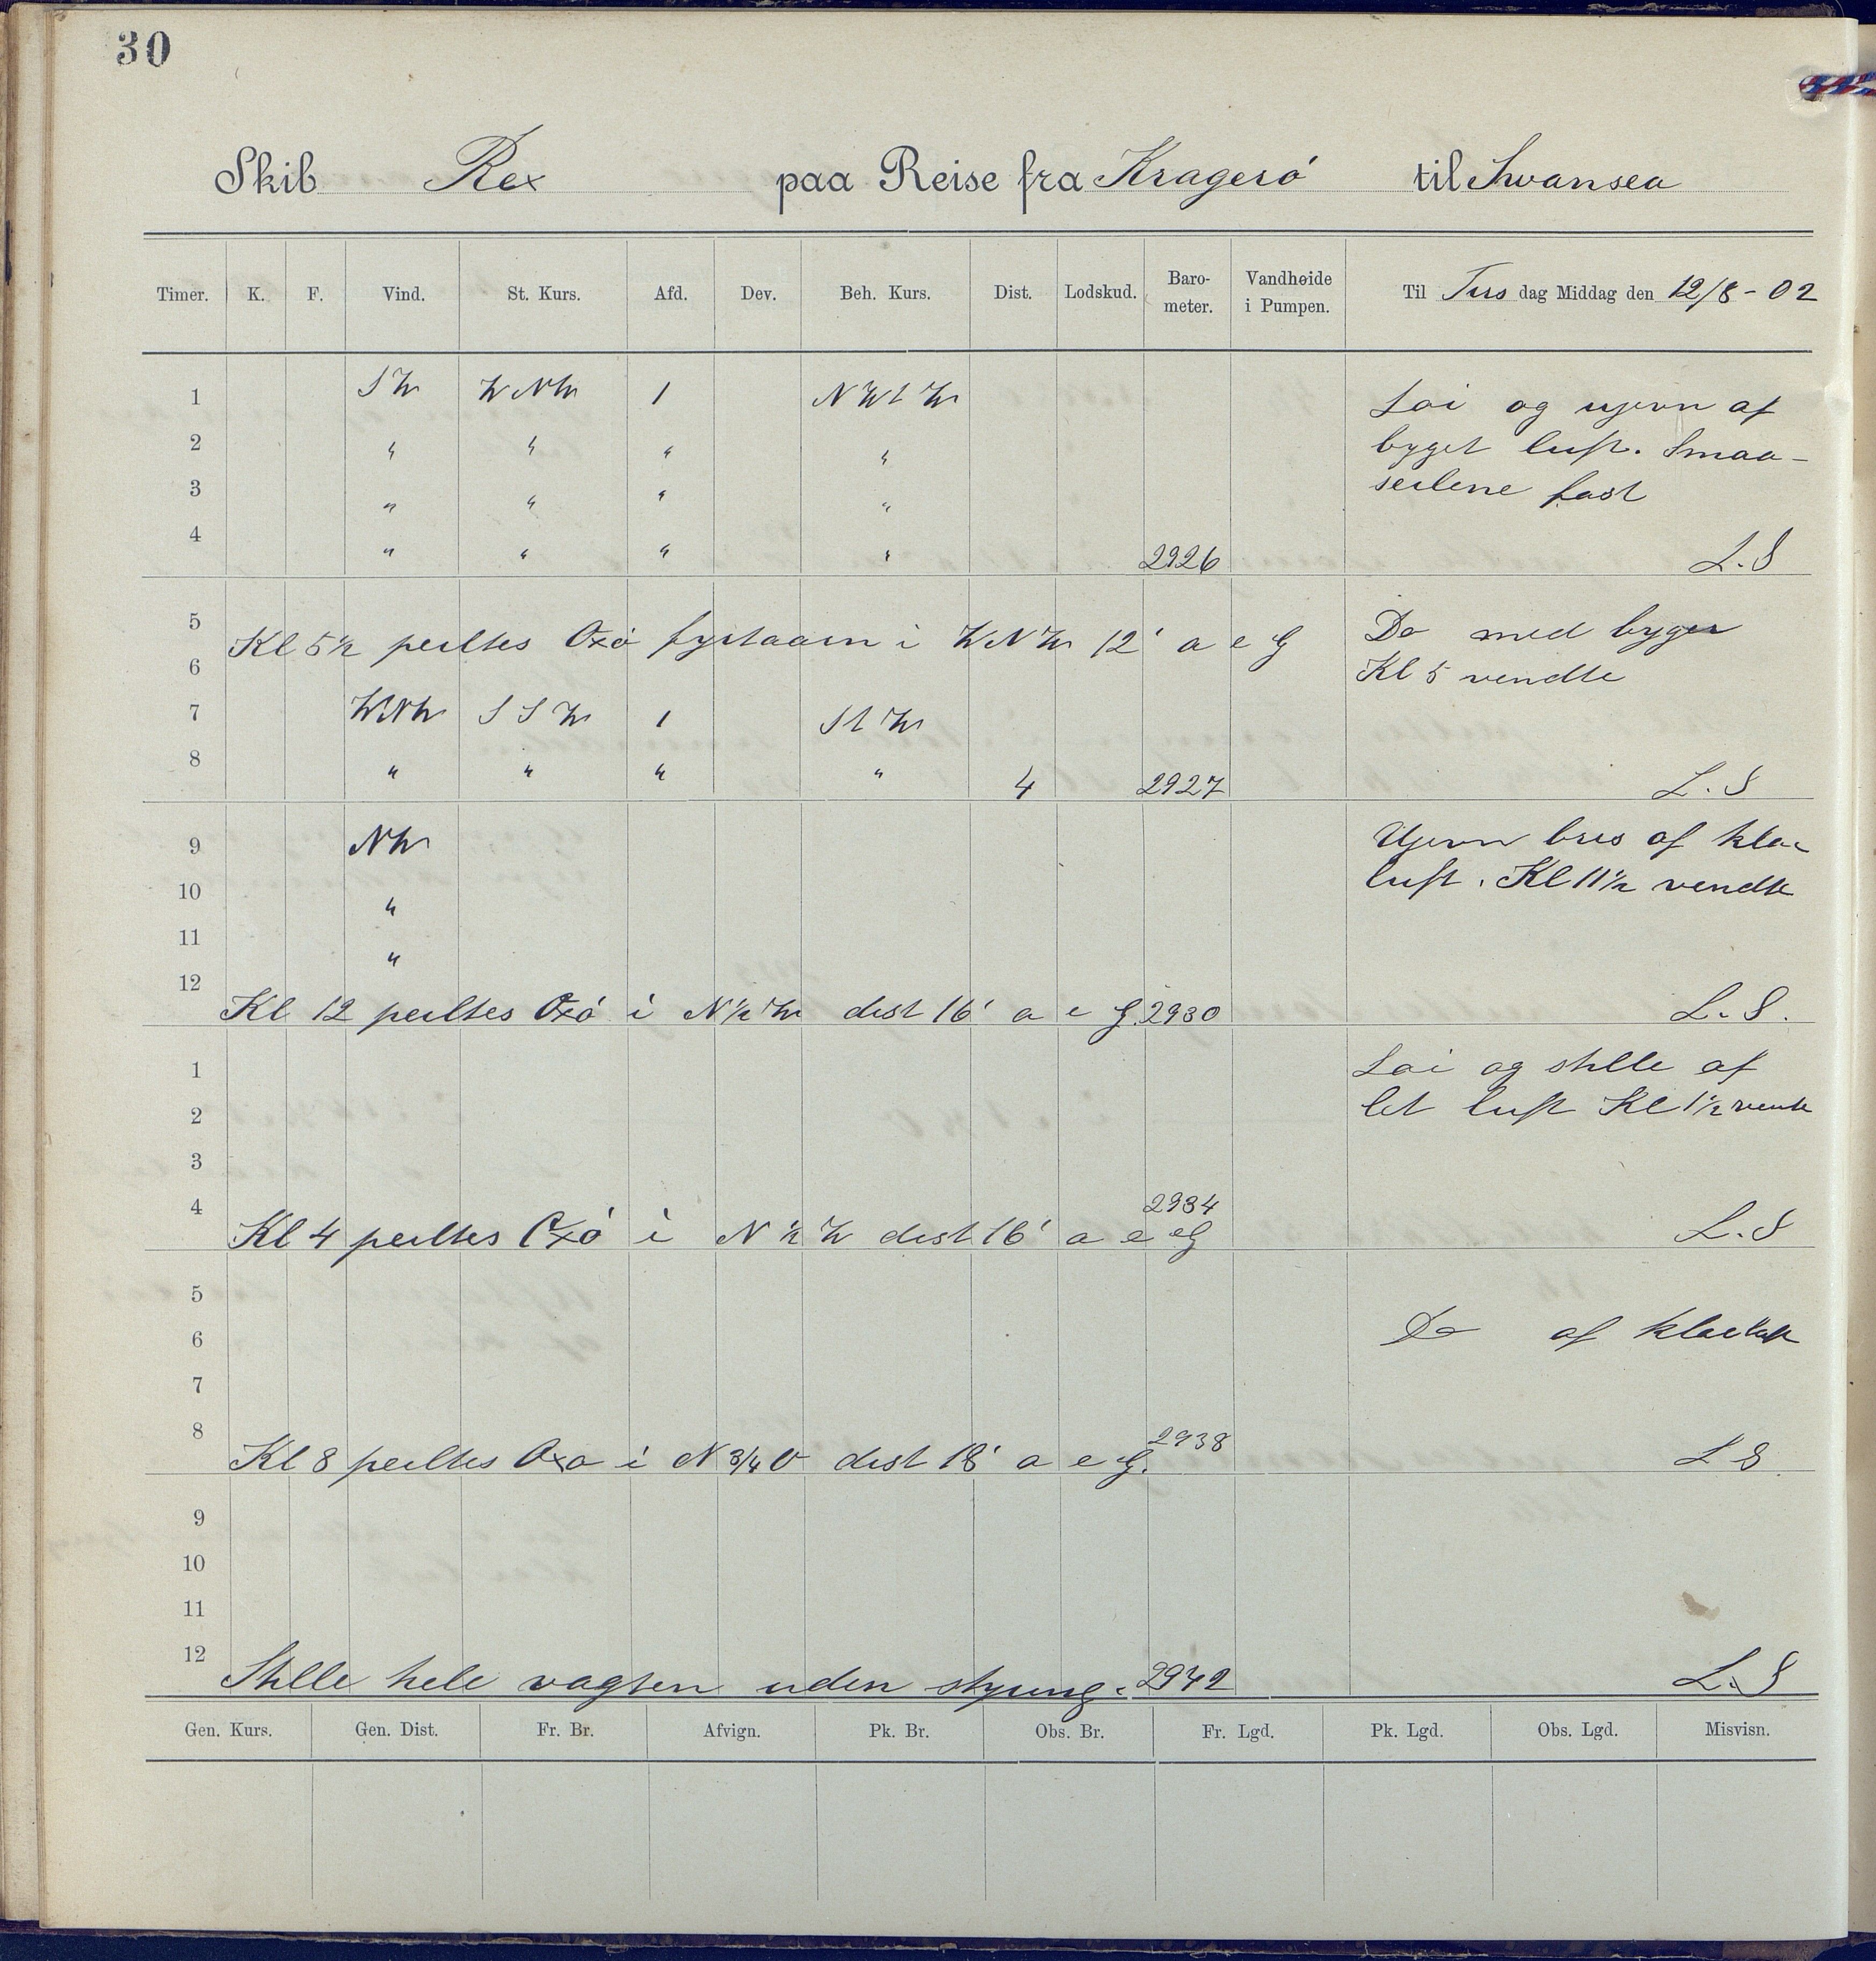 30
Skib Rex paa Reise fra Kragerö til Swansea
Timer. K. F. Vind. St. Kurs. Afd. Dev. Beh. Kurs. Dist. Lodskud. Baro-meter. Vandhøide i Pumpen. Til Tirsdag Middag den 12/8 - 02
1 SW WNW 1 NWtW Löi og ujevn af
2 " " " " byget luft. Smaa-
3 " " " " seilene fast
4 " " " " 2926 L.S
5 Do med byger
Kl 5½ peiltes Oxö fyrtaarn i WNW 12' a e G
6 Kl 5 vendte
7 WNW SSW 1 StW
8 " " " " 4 2927 L.S
9 NW Ujevn bris af klar
10 " luft. Kl 11½ vendte
11 "
12 Kl 12 peiltes Oxö i N½W dist 16' a e G. 2930 L.S.
1 Löi og stille af
2 let luft Kl 1½ vendte
3
4 2934
Kl 4 peiltes Oxö i N½W dist 16' a e G L.S
5
6 Do af klar luft
7
8 2938
Kl 8 peiltes Oxö i N 3/4 O dist 18' a e G. L S.
9
10
11
12 Stille hele vagten uden styring. 2942 L.S
Gen. Kurs. Gen. Dist. Fr. Br. Afvign. Pk. Br. Obs. Br. Fr. Lgd. Pk. Lgd. Obs. Lgd. Misvisn.